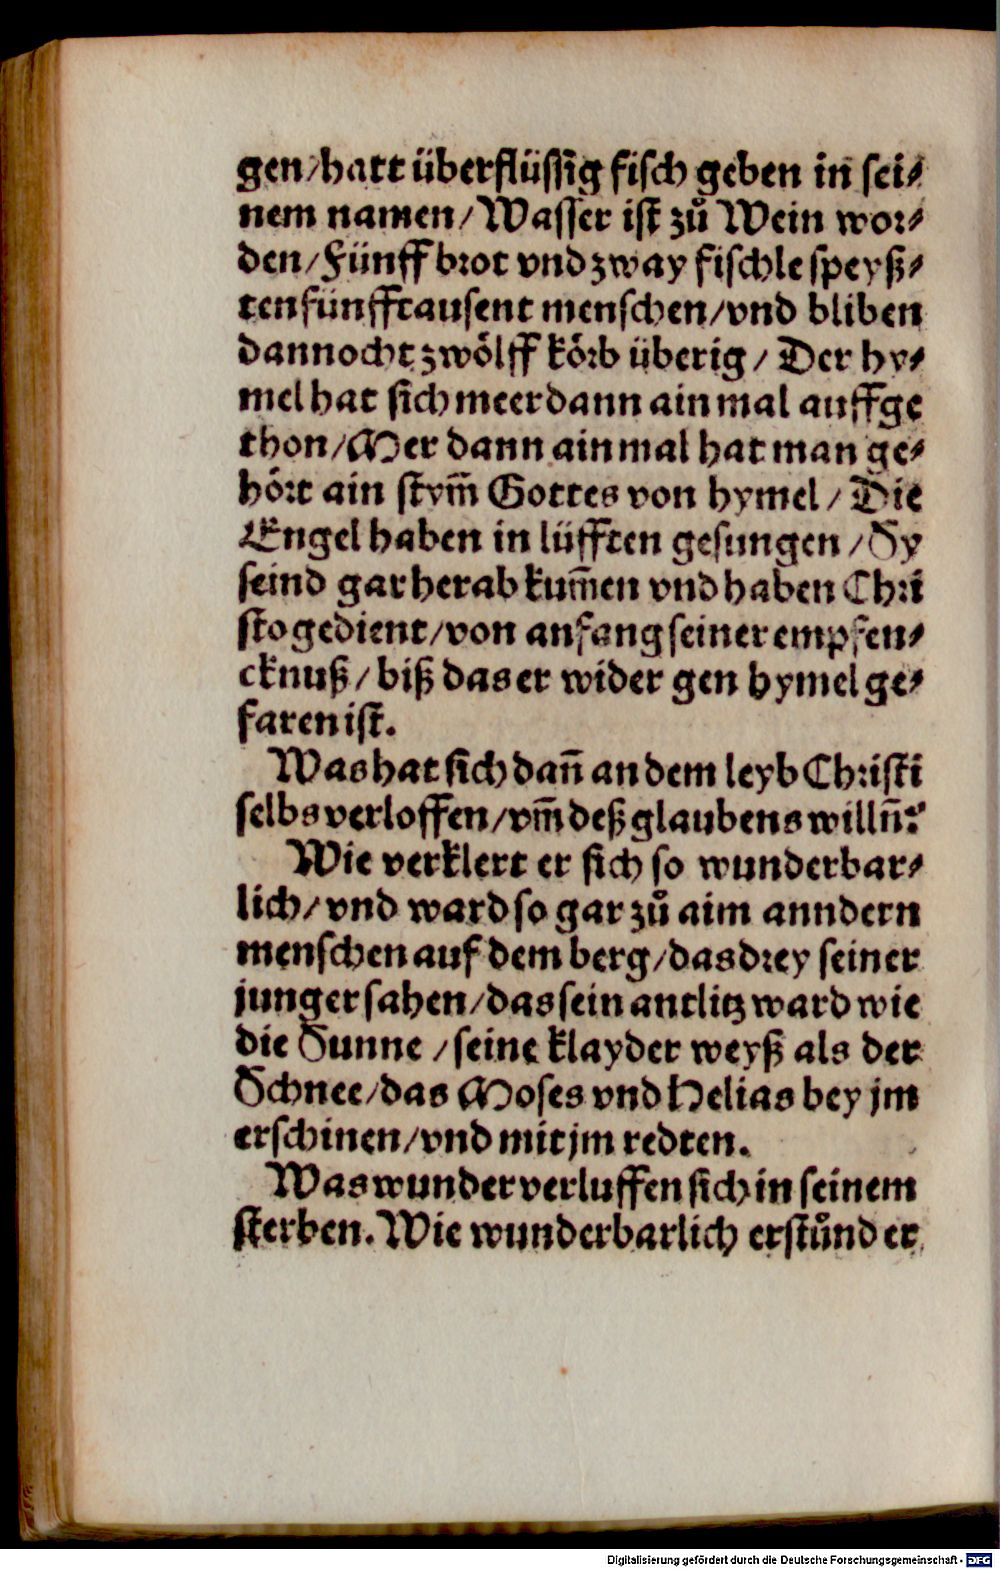 gen/hatt überflüssig fisch geben in sei⸗
nem namen/Wasser ist zů Wein wor⸗
den/Fünff brot vnd zway fischle speyß⸗
ten fünfftausent menschen/vnd bliben
dannocht zwölff körb überig/ Der hy⸗
mel hat sich meer dann ain mal auffge
thon/Mer dann ain mal hat man ge⸗
hört ain stym̃ Gottes von hymel/ Die
Engel haben in lüfften gesungen/Sy
seind gar herab kum̃en vnd haben Chri
sto gedient/von anfang seiner empfen⸗
cknuß/biß das er wider gen hymel ge⸗
faren ist.
Was hat sich dañ an dem leyb Christi
selbs verloffen/vm̃ deß glaubens willñ?
Wie verklert er sich so wunderbar⸗
lich/vnd ward so gar zů aim anndern
menschen auf dem berg/das drey seiner
junger sahen/das sein antlitz ward wie
die Sunne/seine klayder weyß als der
Schnee/das Moses vnd Helias bey jm
erschinen/vnd mit jm redten.
Was wunder verluffen sich in seinem
sterben. Wie wunderbarlich erstůnd er
Digitalisierung gefördert durch die Deutsche Forschungsgemeinschaft - DFG